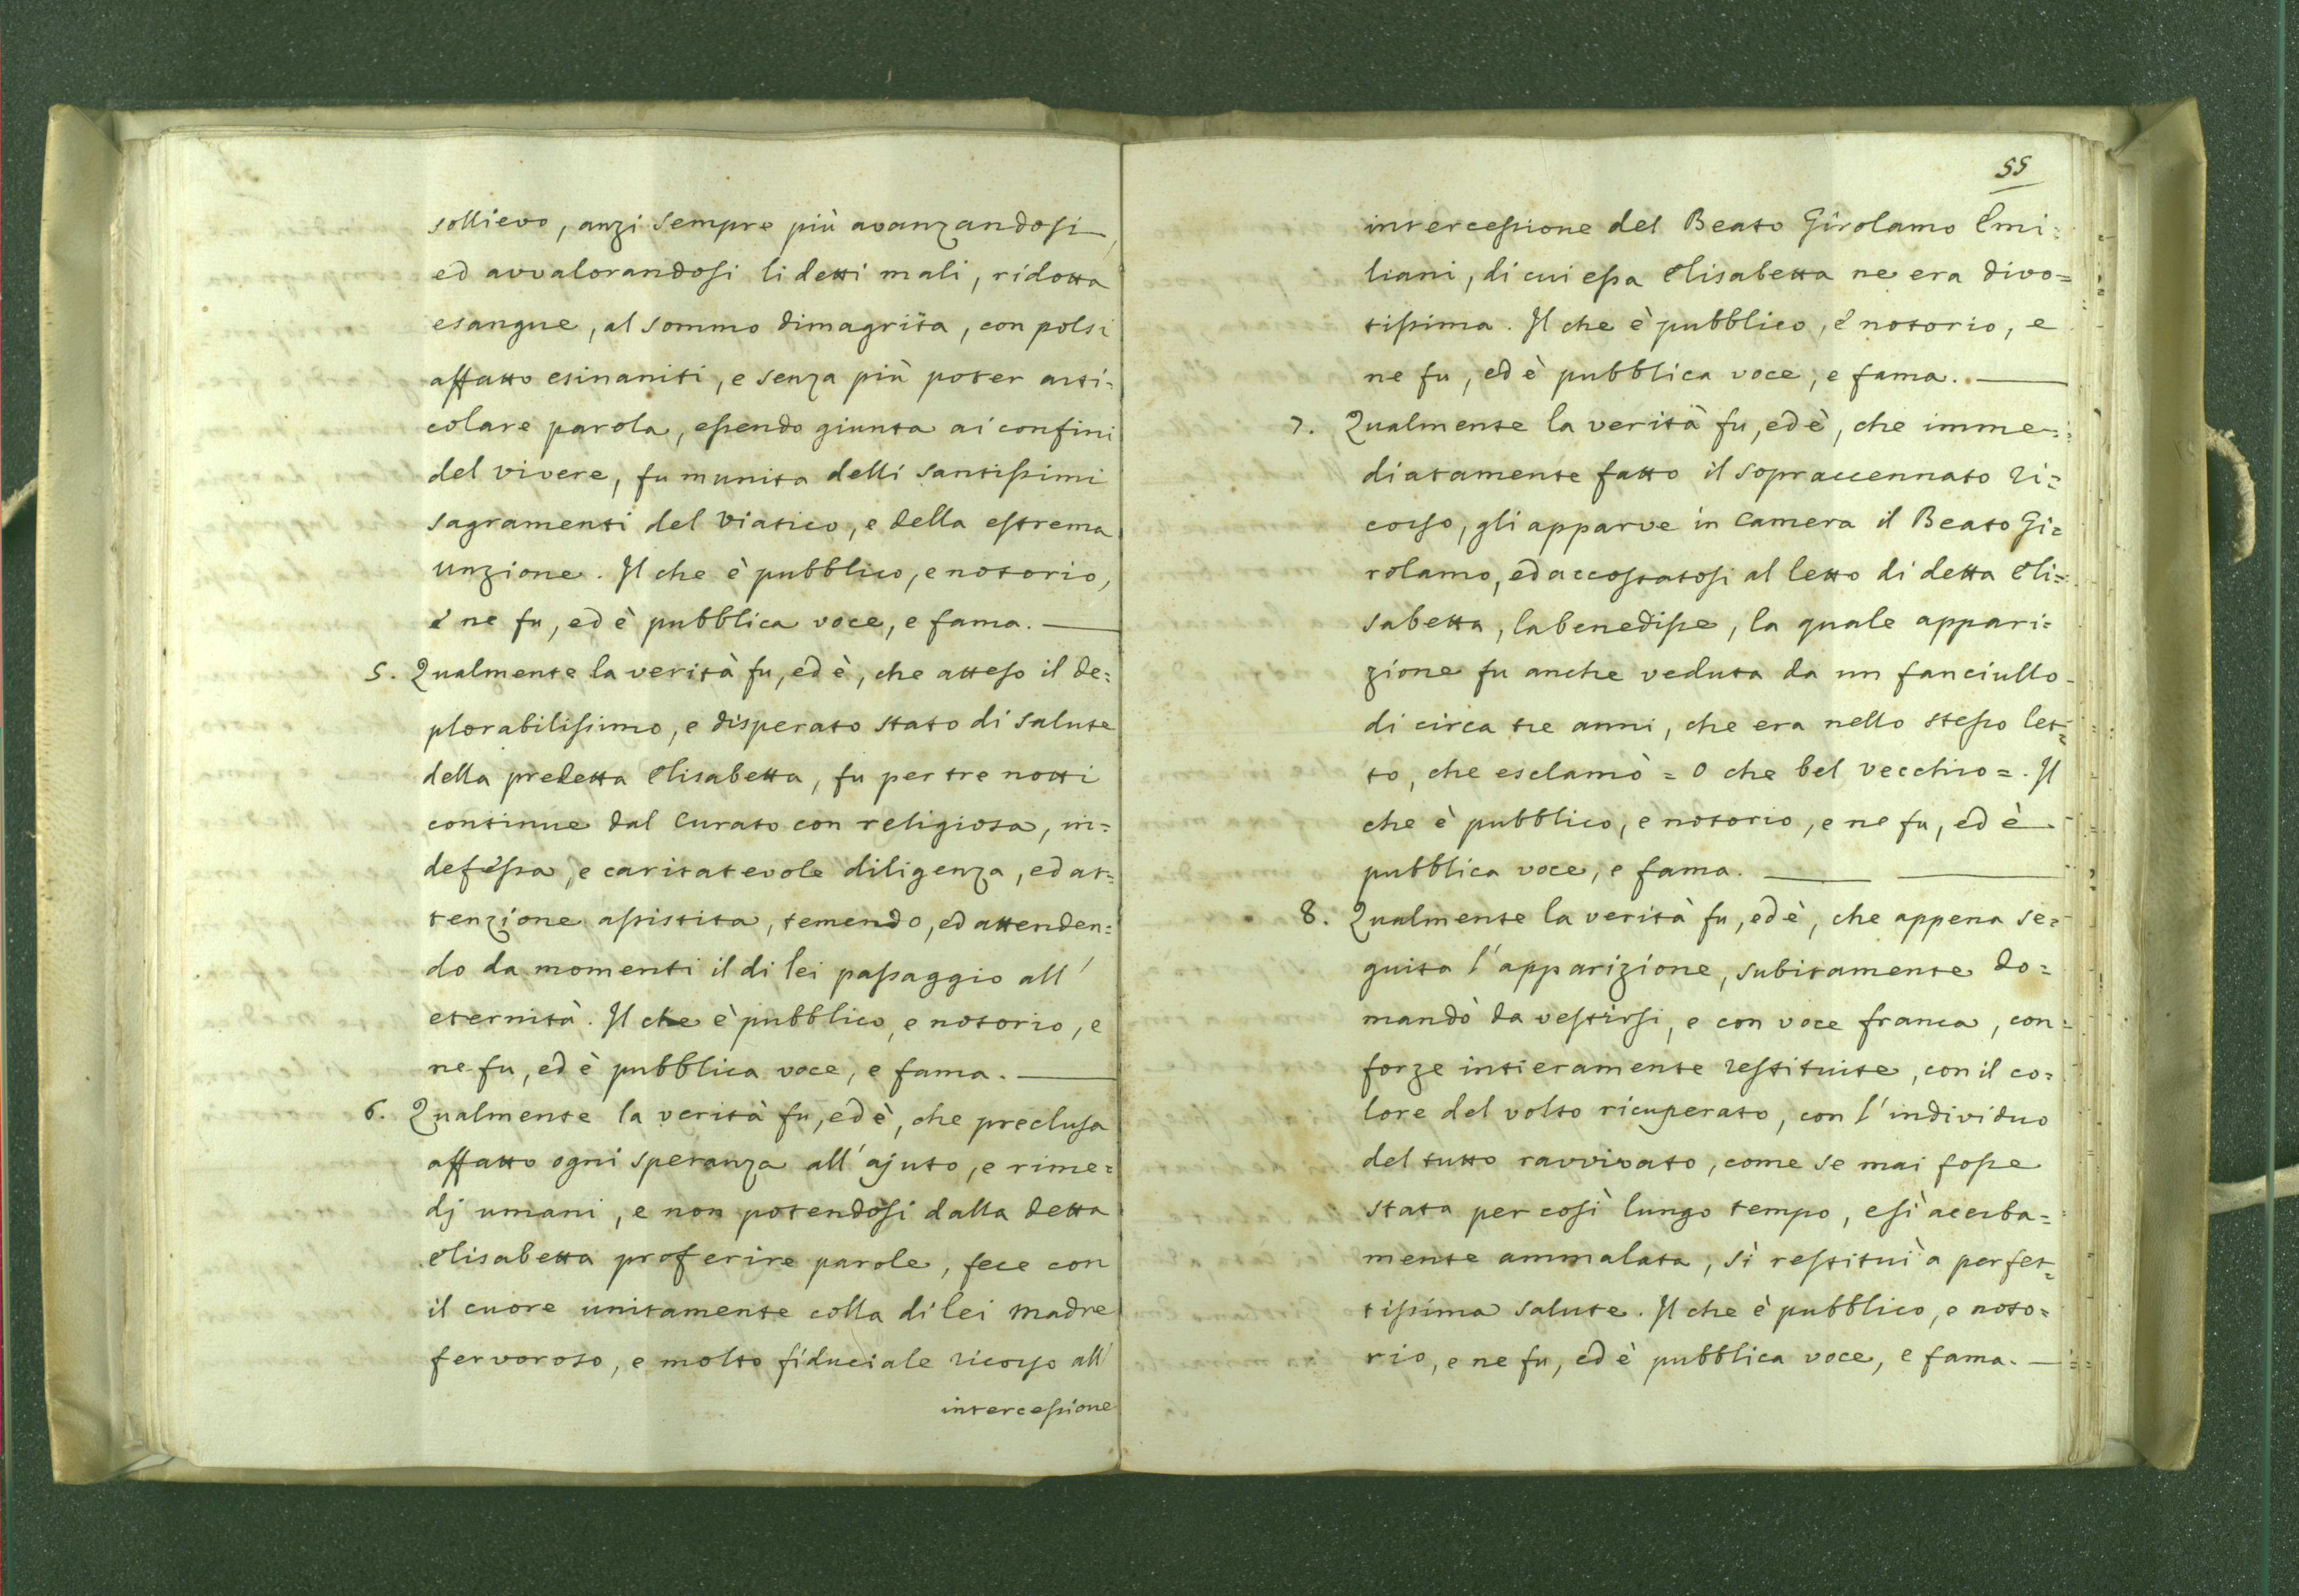 sollievo, anzi sempre più avanzandosi,
ed avvalorandosi li detti mali, ridotta
esangue, al sommo dimagrita, con polsi
affatto esinaniti, e senza più poter arti=
colare parola, essendo giunta ai confini
del vivere, fu munita delli santissimi
sagramenti del Viatico, e della estrema
unzione. Il che è pubblico, e notorio,
e ne fu, ed è pubblica voce, e fama. ——
5. Qualmente la verità fu, ed è, che atteso il de=
plorabilissimo, e disperato stato di salute
della predetta Elisabetta, fu per tre notti
continue dal Curato con religiosa, in=
defessa, e caritatevole diligenza, ed at=
tenzione assistita, temendo, ed attenden=
do da momenti il di lei passaggio all'
eternità. Il che è pubblico, e notorio, e
ne fu, ed è pubblica voce, e fama. ——
6. Qualmente la verità fu, ed è, che preclusa
affatto ogni speranza all'ajuto, e rime=
dj umani, e non potendosi dalla detta
Elisabetta proferire parole, fece con
il cuore unitamente colla di lei Madre
fervoroso, e molto fiduciale ricorso all'
intercessione
55
intercessione del Beato Girolamo Emi=
liani, di cui essa Elisabetta ne era divo=
tissima. Il che è pubblico, è notorio, e
ne fu, ed è pubblica voce, e fama. ——
7. Qualmente la verità fu, ed è, che imme=
diatamente fatto il sopraccennato ri=
corso, gli apparve in Camera il Beato Gi=
rolamo, ed accostatosi al letto di detta Eli=
sabetta, la benedisse, la quale appari=
zione fu anche veduta da un fanciullo
di circa tre anni, che era nello stesso let=
to, che esclamò = O che bel vecchio =. Il
che è pubblico, e notorio, e ne fu, ed è
pubblica voce, e fama. —— ——
8. Qualmente la verità fu, ed è, che appena se=
guita l'apparizione, subitamente do=
mandò da vestirsi, e con voce franca, con
forze intieramente restituite, con il co=
lore del volto ricuperato, con l'individuo
del tutto ravvivato, come se mai fosse
stata per così lungo tempo, e sì acerba=
mente ammalata, sì restituì a perfet=
tissima salute. Il che è pubblico, e noto=
rio, e ne fu, ed è pubblica voce, e fama. —